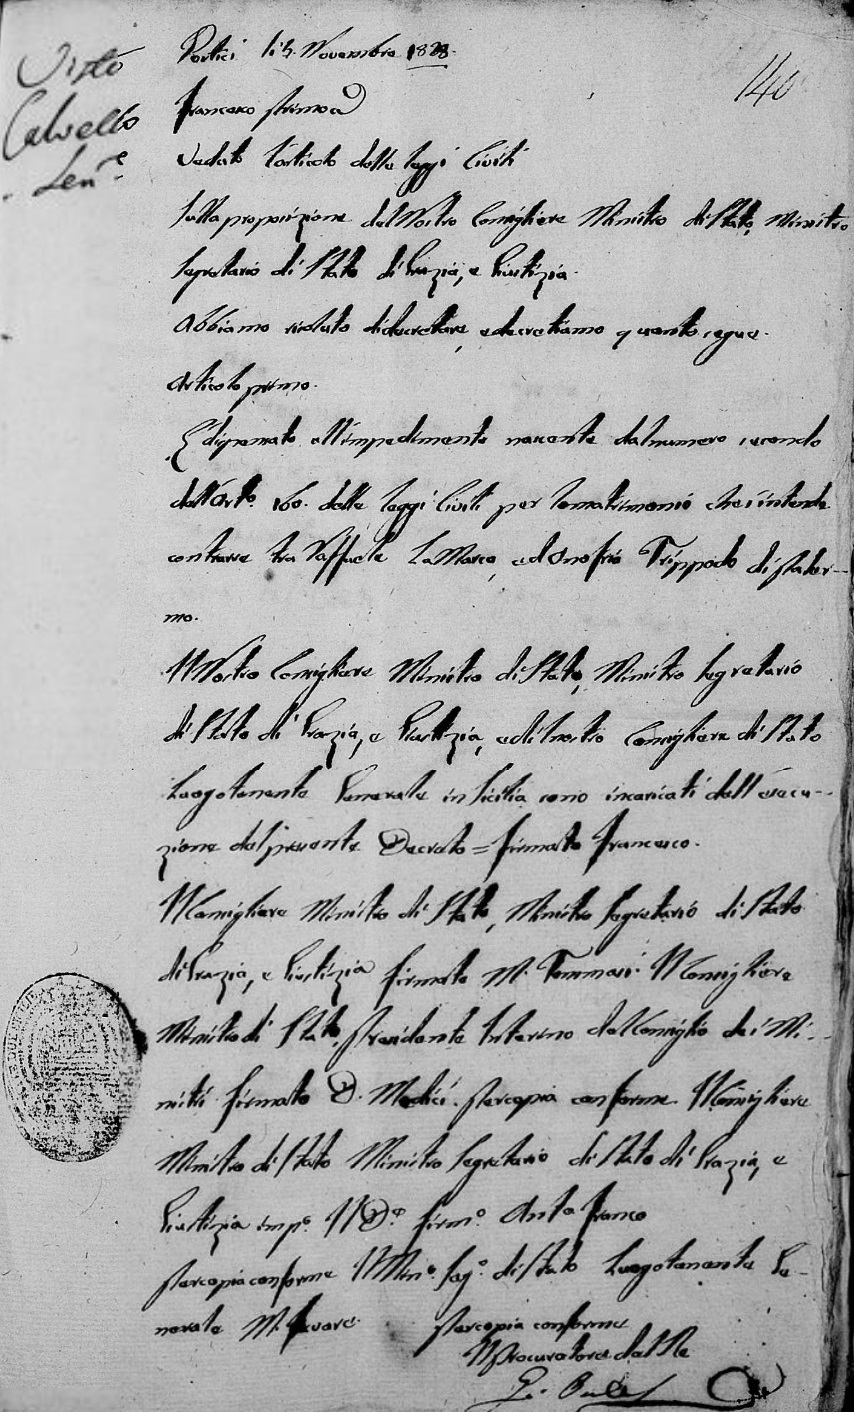 Visto
Calvello
Ten.e
140
Portici li 5. Novembre 1828.
Francesco Primo
Veduto l'articolo delle leggi Civili
Sulla proposizione del Nostro Consigliere Ministro di Stato, Ministro
Segretario di Stato di Grazia, e Giustizia.
Abbiamo risoluto di decretare, e decretiamo quanto segue.
Articolo primo.
È dispensato all'impedimento nascente dal numero secondo
dell'Arto. 160. delle leggi Civili per lo matrimonio che s'intende
contrarre tra Raffaele La Marca, ed Onofrio Trippodo di Paler-
mo.
Il Nostro Consigliere Ministro di Stato, Ministro Segretario
di Stato di Grazia, e Giustizia, ed il nostro Consigliere di Stato
Luogotenente Generale in Sicilia sono incaricati dell'esecu-
zione del presente Decreto = firmato Francesco.
Il Consigliere Ministro di Stato, Ministro Segretario di Stato
di Grazia, e Giustizia firmato M. Tommasi. Il Consigliere
Ministro di Stato, Presidente Interino del Consiglio dei Mi-
nistri firmato D. Medici. Per copia conforme Il Consigliere
Ministro di Stato Ministro Segretario di Stato di Grazia, e
Giustizia imp.o Il D.e firm.o Franco
Per copia conforme Il Min.o Seg.o di Stato Luogotenente Ge-
nerale M.
Per copia conforme
Il Procuratore del Re